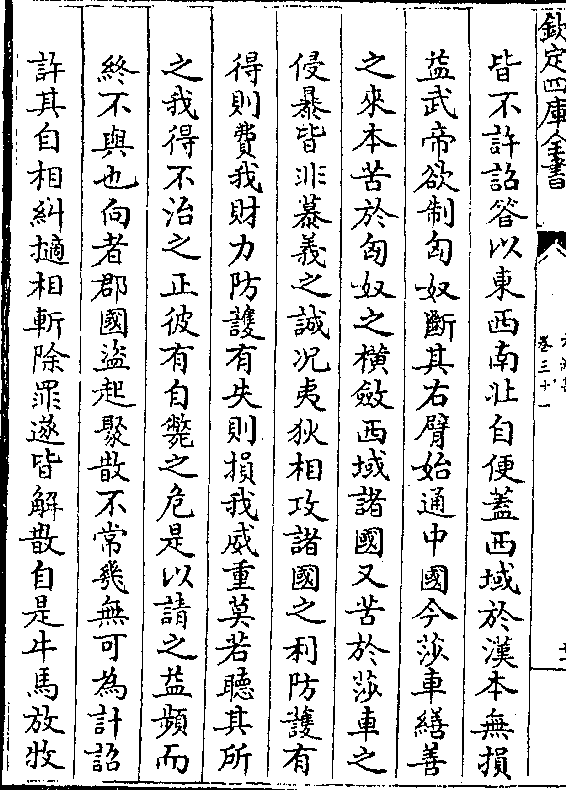 欽定四庫全書
卷三十一
皆不許詔答以東西南北自便蓋西域於漢本無損
益武帝欲制匈奴斷其右臂始通中國今莎車繕善
之來本苦於匈奴之橫斂西域諸國又苦於莎車之
侵暴皆非慕義之誠況夷狄相攻諸國之利防護有
得則費我財力防護有失則損我威重莫若聽其所
之我得不治之正彼有自斃之危是以請之益頻而
終不與也向者郡國盜起聚散不常幾無可為計詔
許其自相糾擿相斬除罪遂皆解散自是牛馬放牧